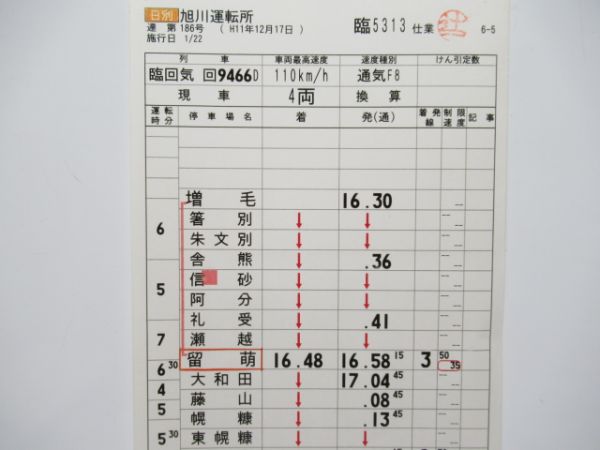 日別 旭川運転所 臨5313 仕業 6-5
達 第 186号 ( H11年12月17日 )
施行日 1/22
列車 車両最高速度 速度種別 けん引定数
臨回気 回9466D 110km/h 通気F8
現車 4両 換算
運転時分 停車場名 着 発(通) 着発線 制限速度 記事
増毛 16.30
6 箸別 ↓ ↓
朱文別 ↓ ↓
舎熊 ↓ .36
5 信砂 ↓ ↓
阿分 ↓ ↓
礼受 ↓ .41
7 瀬越 ↓ ↓
6 30 留萌 16.48 16.58 15 3 50 35
4 大和田 ↓ 17.04 45
5 藤山 ↓ .08 45
幌糠 ↓ .13 45
5 30 東幌糠 ↓ ↓